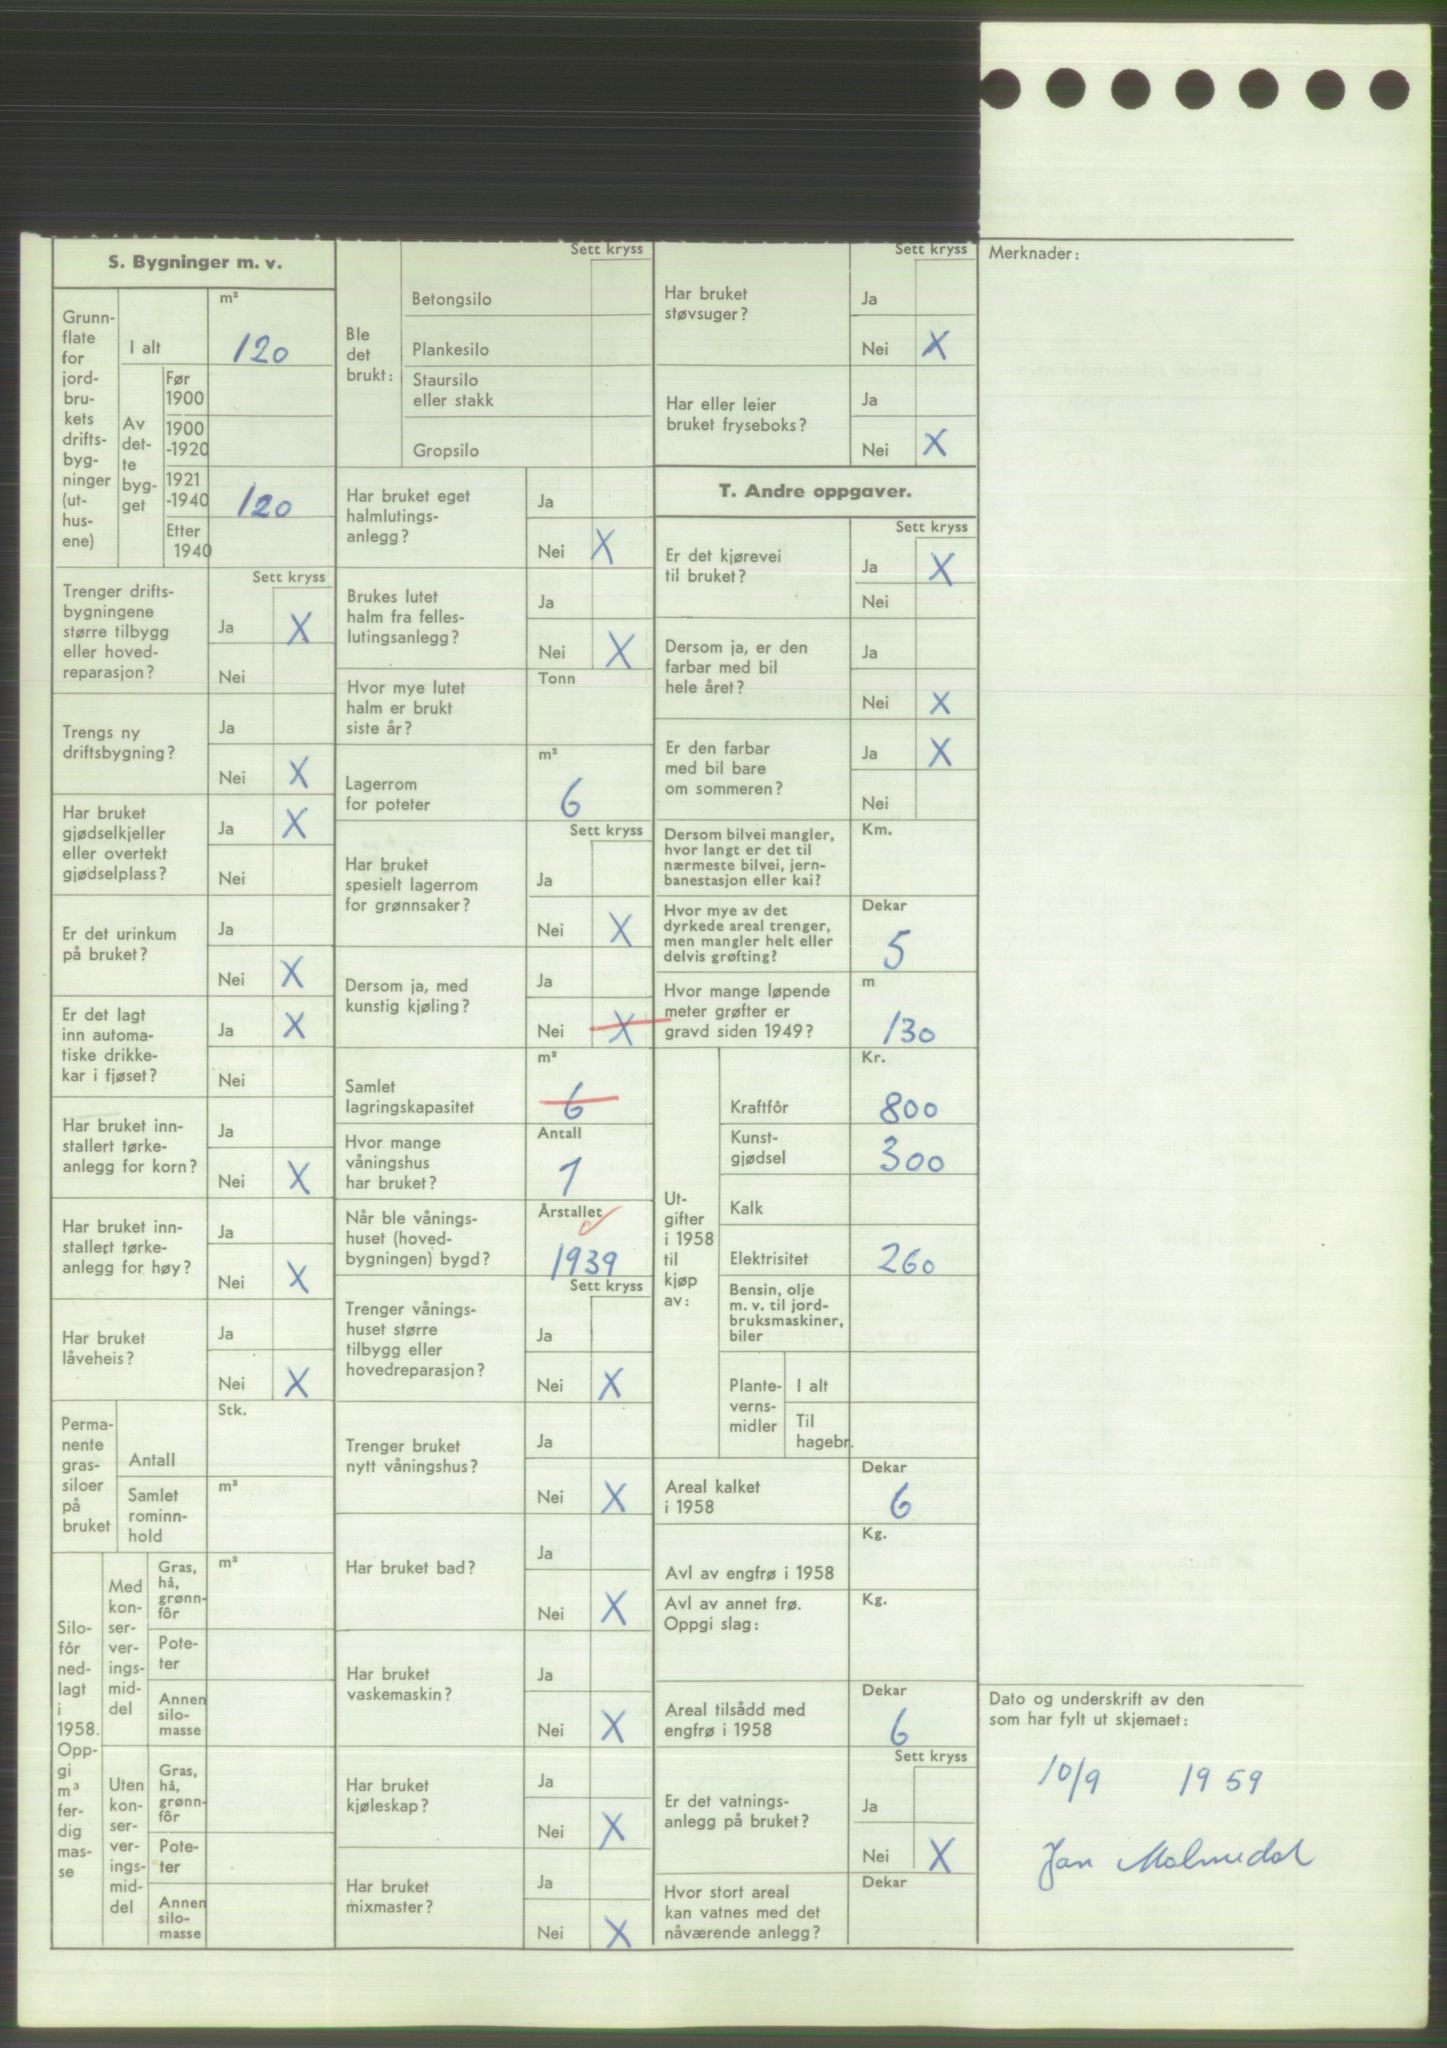 S. Bygninger m. v.
Grunn-
flate
for
jord-
bru-
kets
drifts-
byg-
ninger
(ut-
hus-
ene)
m²
I alt 120
Av
det-
te
byg-
get
Før
1900
1900
-1920
1921
-1940 120
Etter
1940
Sett kryss
Trenger drifts-
bygningene
større tilbygg
eller hoved-
reparasjon?
Ja X
Nei
Trengs ny
driftsbygning?
Ja
Nei X
Har bruket
gjødselkjeller
eller overtekt
gjødselplass?
Ja X
Nei
Er det urinkum
på bruket?
Ja
Nei X
Er det lagt
inn automa-
tiske drikke-
kar i fjøset?
Ja X
Nei
Har bruket inn-
stallert tørke-
anlegg for korn?
Ja
Nei X
Har bruket inn-
stallert tørke-
anlegg for høy?
Ja
Nei X
Har bruket
låveheis?
Ja
Nei X
Perma-
nente
gras-
siloer
på
bruket
Stk.
Antall
m³
Samlet
rominn-
hold
Silo-
fôr
ned-
lagt
i
1958.
Opp-
gi
m³
fer-
dig
mas-
se
Med
kon-
ser-
ver-
ings-
mid-
del
m³
Gras,
hå,
grønn-
fôr
Pote-
ter
Annen
silo-
masse
Uten
kon-
ser-
ver-
ings-
mid-
del
Gras,
hå,
grønn-
fôr
Pote-
ter
Annen
silo-
masse
Sett kryss
Ble
det
brukt:
Betongsilo
Plankesilo
Staursilo
eller stakk
Gropsilo
Har bruket eget
halmlutings-
anlegg?
Ja
Nei X
Brukes lutet
halm fra felles-
lutingsanlegg?
Ja
Nei X
Hvor mye lutet
halm er brukt
siste år?
Tonn
Lagerrom
for poteter
m³
6
Sett kryss
Har bruket
spesielt lagerrom
for grønnsaker?
Ja
Nei X
Dersom ja, med
kunstig kjøling?
Ja
Nei X
Samlet
lagringskapasitet
m³
6
Hvor mange
våningshus
har bruket?
Antall
1
Når ble vånings-
huset (hoved-
bygningen) bygd?
Årstallet
1939
Sett kryss
Trenger vånings-
huset større
tilbygg eller
hovedreparasjon?
Ja
Nei X
Trenger bruket
nytt våningshus?
Ja
Nei X
Har bruket bad?
Ja
Nei X
Har bruket
vaskemaskin?
Ja
Nei X
Har bruket
kjøleskap?
Ja
Nei X
Har bruket
mixmaster?
Ja
Nei X
Sett kryss
Har bruket
støvsuger?
Ja
Nei X
Har eller leier
bruket fryseboks?
Ja
Nei X
T. Andre oppgaver.
Sett kryss
Er det kjørevei
til bruket?
Ja X
Nei
Dersom ja, er den
farbar med bil
hele året?
Ja
Nei X
Er den farbar
med bil bare
om sommeren?
Ja X
Nei
Dersom bilvei mangler,
hvor langt er det til
nærmeste bilvei, jern-
banestasjon eller kai?
Km.
Hvor mye av det
dyrkede areal trenger,
men mangler helt eller
delvis grøfting?
Dekar
5
Hvor mange løpende
meter grøfter er
gravd siden 1949?
m
130
Ut-
gifter
i 1958
til
kjøp
av:
Kr.
Kraftfôr 800
Kunst-
gjødsel 300
Kalk
Elektrisitet 260
Bensin, olje
m. v. til jord-
bruksmaskiner,
biler
Plante-
verns-
midler
I alt
Til
hagebr.
Areal kalket
i 1958
Dekar
6
Kg.
Avl av engfrø i 1958
Avl av annet frø.
Oppgi slag:
Kg.
Areal tilsådd med
engfrø i 1958
Dekar
6
Sett kryss
Er det vatnings-
anlegg på bruket?
Ja
Nei X
Hvor stort areal
kan vatnes med det
nåværende anlegg?
Dekar
Merknader:
Dato og underskrift av den
som har fylt ut skjemaet:
10/9 1959
Jan Malmedal